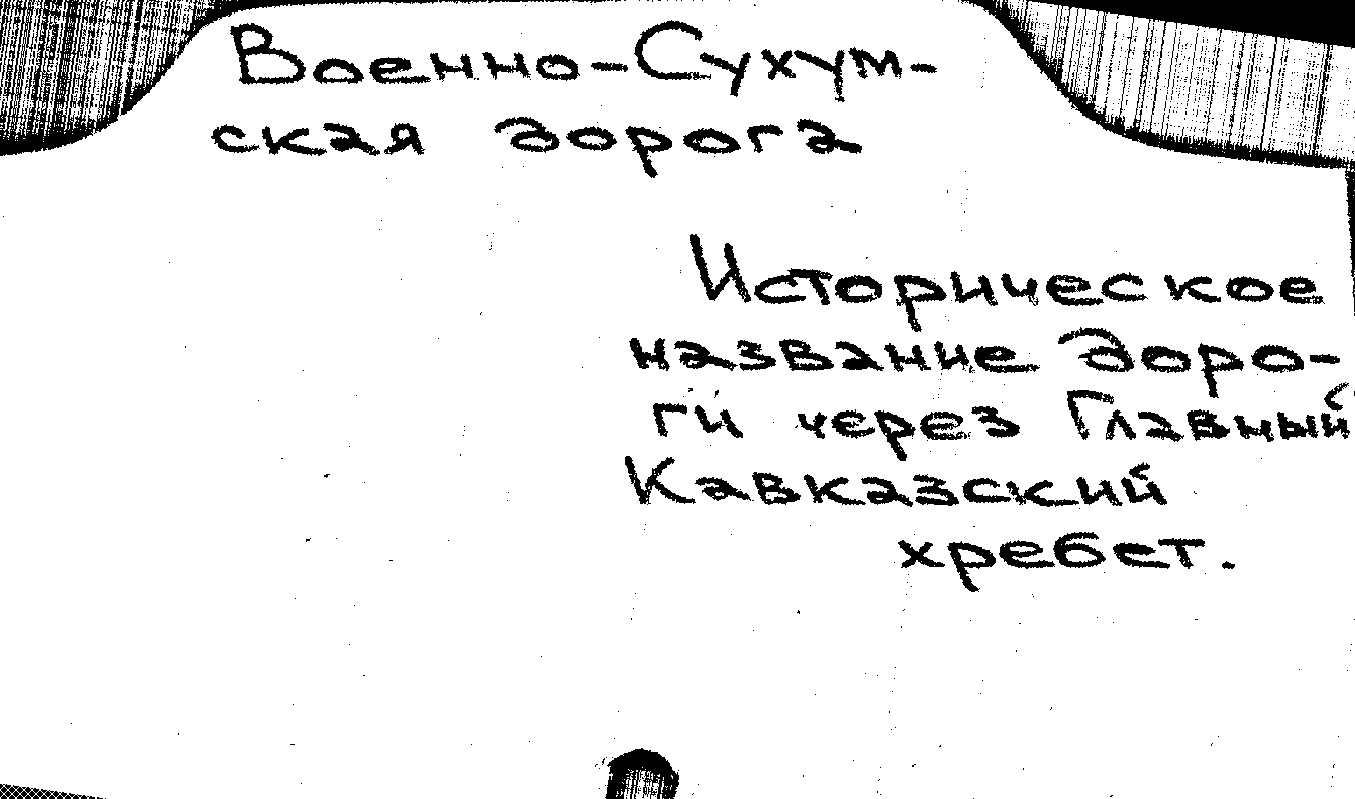 Военно-Сухум-
ская дорога
Историческое
название доро-
ги через Главный
Кавказский
хребет.